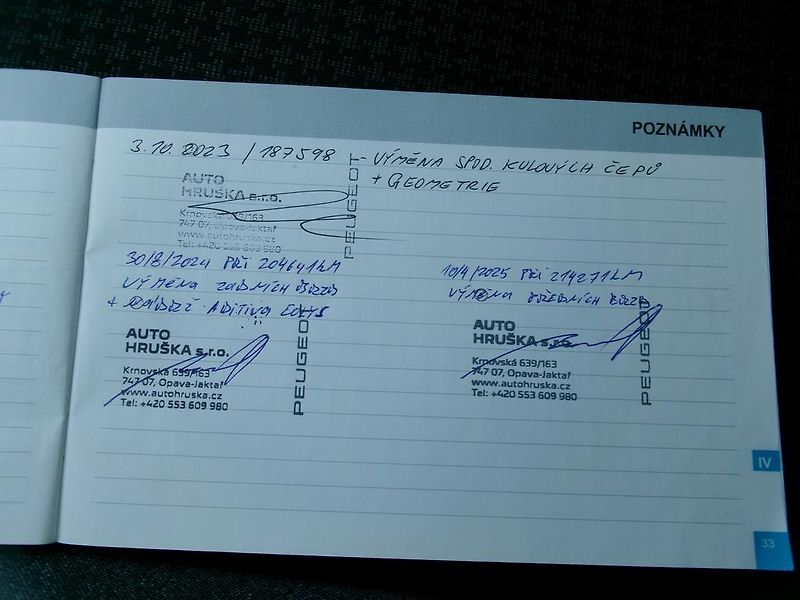 POZNÁMKY
3.10.2023 / 187598 - VÝMĚNA SPOD. KULOVÝCH ČEPŮ
+ GEOMETRIE
AUTO
HRUŠKA s.r.o.
Krnovská 639/163
747 07, Opava-Jaktař
www.autohruska.cz
Tel: +420 553 609 980
PEUGEOT
30/8/2024 PŘI 204641KM
VÝMĚNA ZADNÍCH
+ ADITIVA EOLYS
AUTO
HRUŠKA s.r.o.
Krnovská 639/163
747 07, Opava-Jaktař
www.autohruska.cz
Tel: +420 553 609 980
PEUGEOT
10/4/2025 PŘI 214271KM
VÝMĚNA
AUTO
HRUŠKA s.r.o.
Krnovská 639/163
747 07, Opava-Jaktař
www.autohruska.cz
Tel: +420 553 609 980
PEUGEOT
IV
33